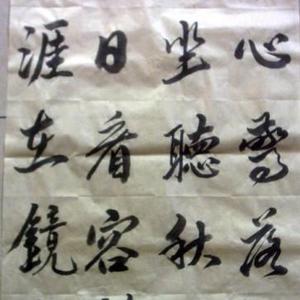 心驚落
坐聽秋
日看容
涯在鏡